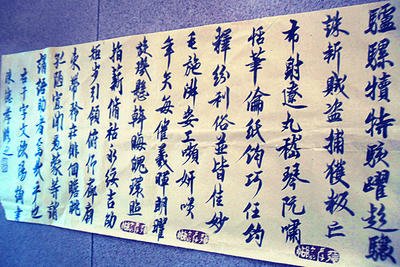 驢騾犢特駭躍超驤
誅斬賊盜捕獲叛亡
布射遼丸嵇琴阮嘯
恬筆倫紙鈞巧任釣
釋紛利俗並皆佳妙
毛施淑姿工嚬妍咲
年矢每催羲暉朗曜
旋璣懸斡晦魄環照
指薪脩祜永綏吉劭
矩步引領俯仰廊廟
束帶矜莊徘徊瞻眺
孤陋寡聞愚蒙等誚
謂語助者焉哉乎也
右千字文歐陽詢書